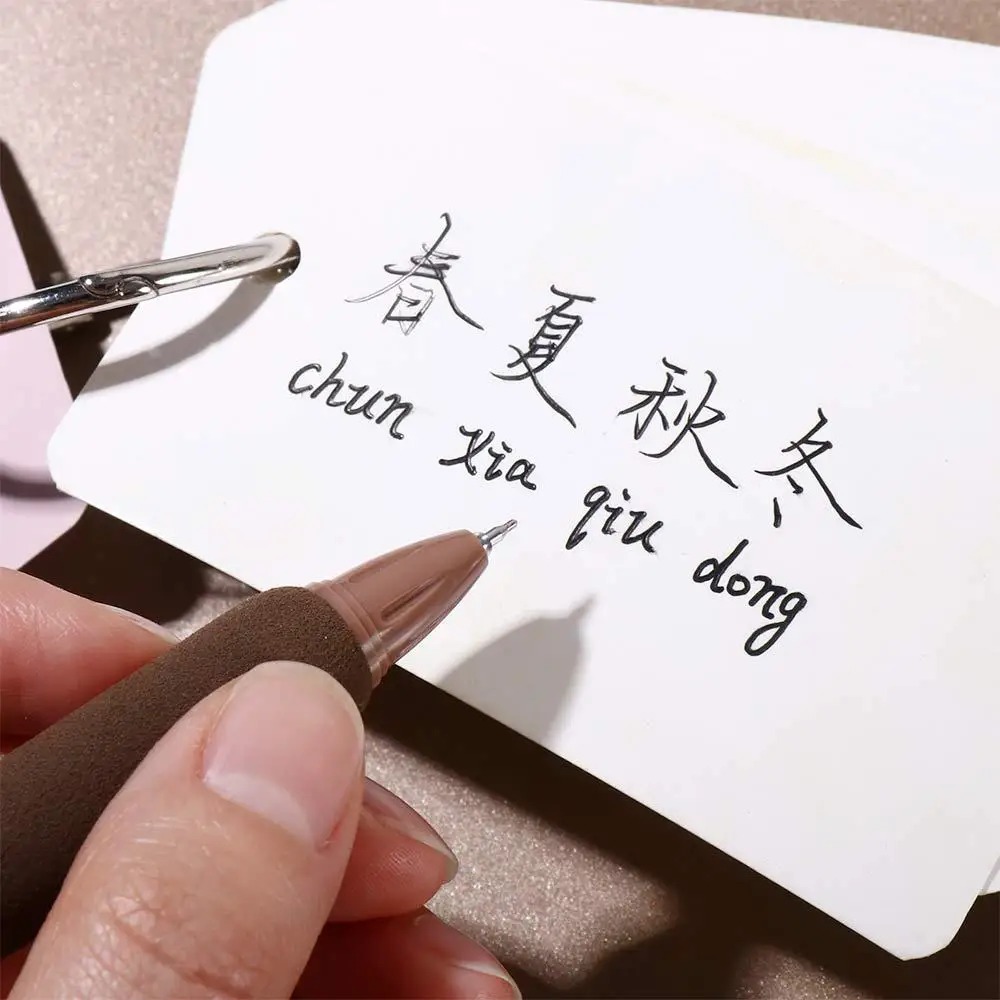 春夏秋冬
chun xia qiu dong